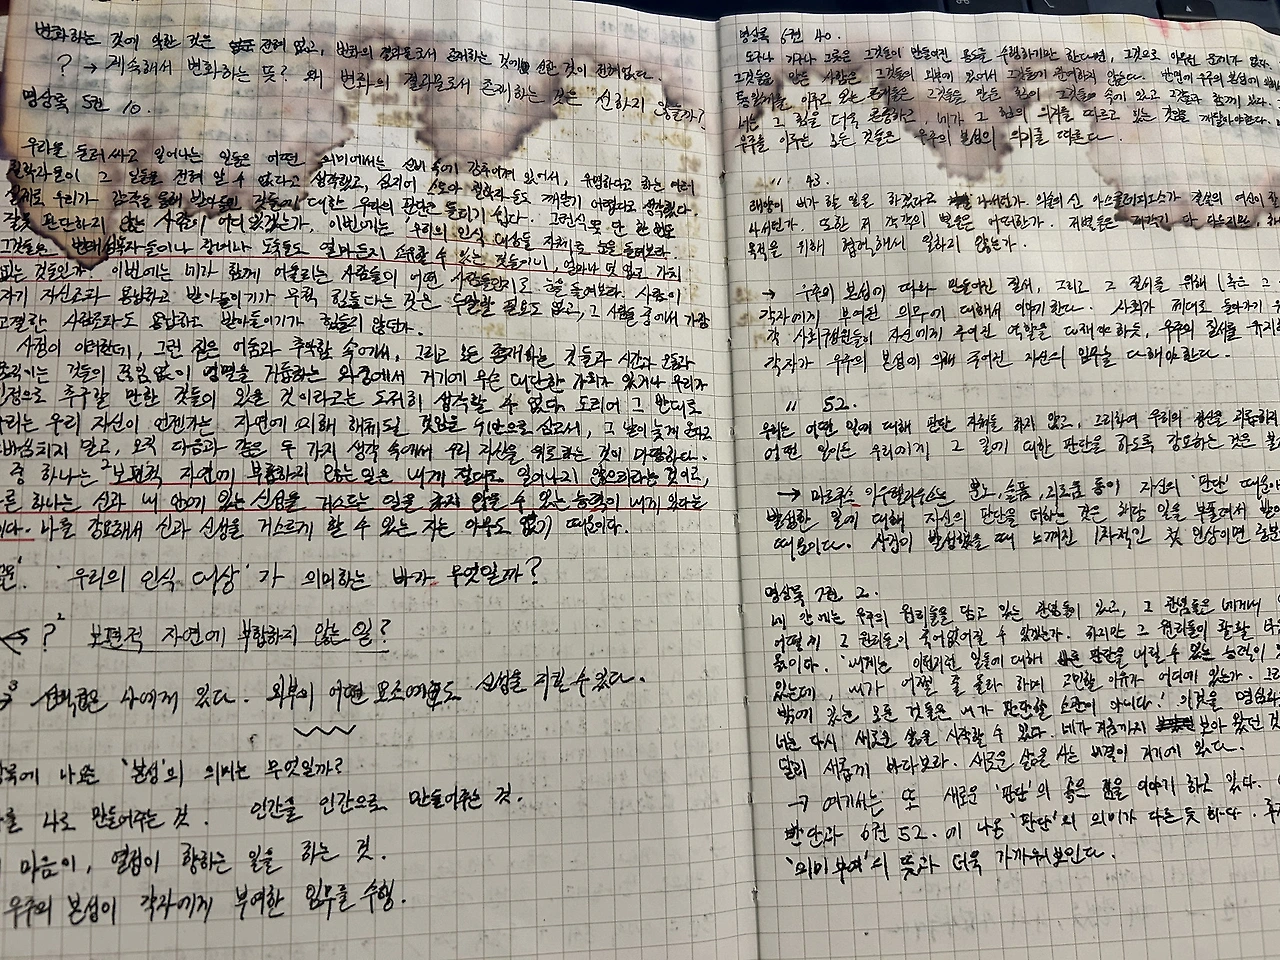 변화하는 것에 악한 것은 전혀 없고, 변화의 결과물로서 존재하는 것에 선한 것이 전혀 없다.
? → 계속해서 변화하는 뜻? 왜 변화의 결과물로서 존재하는 것은 선하지 않을까?
명상록 5권 10.
우리를 둘러싸고 일어나는 일들은 어떤 의미에서는 신비 속에 감추어져 있어서, 유명하다고 하는 여러
철학자들이 그 일들을 전혀 알 수 없다고 생각했고, 심지어 스토아 철학자들도 깨닫기 어렵다고 생각했다.
실제로 우리가 감각을 통해 받아들인 것들에 대한 우리의 판단은 틀리기 쉽다. 그런식으로 단 한 번도
잘못 판단하지 않는 사람이 어디 있겠는가. 이번에는 '우리의 인식 대상들 자체로 눈을 돌려보라.
그것들은 자들이나 창녀나 도둑들도 얼마든지 소유할 수 있는 것들이니, 얼마나 덧없고 가치
없는 것들인가. 이번에는 네가 함께 어울리는 사람들의 어떤 사람들인지로 눈을 돌려보라. 사람이
자기 자신조차 용납하고 받아들이기가 무척 힘들다는 것은 두말할 필요도 없고, 그 사람들 중에서 가장
고결한 사람조차도 용납하고 받아들이기가 힘들지 않던가.
사정이 이러한데, 그런 짙은 어둠과 추악함 속에서, 그리고 모든 존재하는 것들과 시간과 운동과
움직이는 것들이 끊임없이 명멸을 거듭하는 와중에서 거기에 무슨 대단한 가치가 있거나 우리가
진정으로 추구할 만한 것들이 있을 것이라고는 도저히 생각할 수 없다. 도리어 그 반대로
우리는 우리 자신이 언젠가는 자연에 의해 해체될 것임을 위안으로 삼고서, 그 날이 늦게 온다고
조바심치지 말고, 오직 다음과 같은 두 가지 생각 속에서 우리 자신을 위로하는 것이 마땅하다.
중 하나는 ²보편적 자연에 부합하지 않는 일은 내게 절대로 일어나지 않으리라는 것이고,
다른 하나는 신과 내 안에 있는 신성을 거스르는 일을 하지 않을 수 있는 능력이 내게 있다는
것이다. 나를 강요해서 신과 신성을 거스르게 할 수 있는 자는 아무도 없기 때문이다.
'우리의 인식 대상'가 의미하는 바가 무엇일까?
?² 보편적 자연에 부합하지 않는 일?
³ 나에게 있다. 외부의 어떤 요소에도 신성을 지킬 수 있다.
명상록에 나오는 '본성'의 의미는 무엇일까?
나를 나로 만들어주는 것. 인간을 인간으로 만들어주는 것.
마음이, 열성이 향하는 일을 하는 것.
우주의 본성이 각자에게 부여한 임무를 수행.
명상록 6권 40.
도구나 기구나 그릇은 그것들이 만들어진 용도를 수행하기만 한다면, 그것으로 아무런 문제가 없다.
그것들을 만든 사람은 그것들의 외부에 있어서 그것들에 관여하지 않는다. 반면에 우주의 본성에 의해
통일체를 이루고 있는 존재들은 그것들을 만든 힘이 그것들 속에 있고 그것들과 함께 있다.
너는 그 힘을 더욱 존중하고, 네가 그 힘의 의지를 따르고 있는 것을 깨달아야한다.
우주를 이루는 모든 것들은 우주의 본성의 의지를 따른다.
" 43.
태양이 비가 할 일을 하겠다고 나서던가. 의술의 신 아스클레피오스가 결실의 여신이 할
나서던가. 또한 저 각각의 별들은 어떠한가. 저 별들은 제각각 다 다르지만,
목적을 위해 협력해서 일하지 않는가.
→ 우주의 본성에 따라 만들어진 질서, 그리고 그 질서를 위해 (혹은 그
각자에게 부여된 의무에 대해서 이야기한다. 사회가 제대로 돌아가기
각 사회구성원들이 자신에게 주어진 역할을 다해야 하듯, 우주의 질서를 유지하
각자가 우주의 본성에 의해 주어진 자신의 임무를 다해야한다.
" 52.
우리는 어떤 일에 대해 판단 자체를 하지 않고, 그리하여 우리의 정신을 괴롭히지
어떤 일이든 우리에게 그 일에 대한 판단을 하도록 강요하는 것은
→ 마르쿠스 아우렐리우스는 분노, 슬픔, 괴로움 등이 자신의 '판단' 때문이
발생한 일에 대해 자신의 판단을 더하는 것은 해당 일을 부풀려서 받아
때문이다. 사건이 발생했을 때 느껴진 1차적인 첫 인상이면 충분
명상록 7권 2.
네 안에는 우주의 원리들을 담고 있는 관념들이 있고, 그 관념들은 네게서
어떻게 그 원리들이 죽어 없어질 수 있겠는가. 하지만 그 원리들이 활활 타오
몫이다. '내게는 이런저런 일들에 대해 바른 판단을 내릴 수 있는 능력이
있는데, 내가 어쩔 줄 몰라 하며 고민할 이유가 어디에 있는가. 그리
밖에 있는 모든 것들은 내가 판단할 소관이 아니다.' 이것을 명심하
너는 다시 새로운 삶을 시작할 수 있다. 네가 지금까지 보아 왔던 것
달리 새롭게 바라보라. 새로운 삶을 사는 비결이 거기에 있다.
→ 여기서는 또 새로운 '판단'의 좋은 점을 이야기 하고 있다.
판단과 6권 52.에 나온 '판단'의 의미가 다른 듯 하다.
'의미 부여'의 뜻과 더욱 가까워보인다.